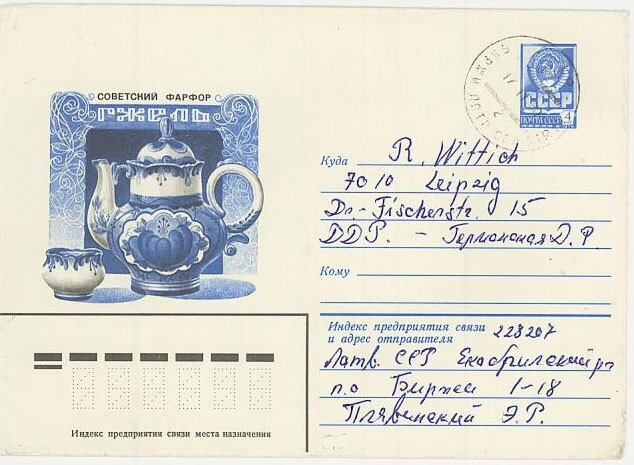 СОВЕТСКИЙ ФАРФОР
ГЖЕЛЬ
СССР
ПОЧТА СССР
4
Куда R. Wittich
7010 Leipzig
Dr.-Fischerstr. 15
DDR. - Германская Д.Р.
Кому
Индекс предприятия связи
и адрес отправителя 228207
Латв. ССР Екабпилский р
п.о Биржи 1-18
Плявинский Э.Р.
Индекс предприятия связи места назначения